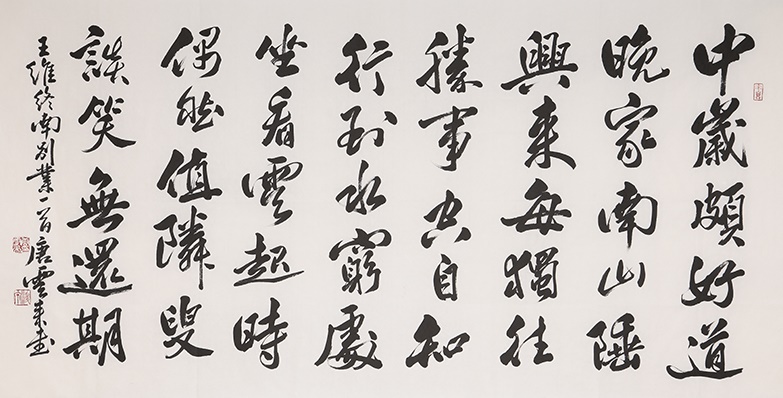 中歲頗好道
晚家南山陲
興來每獨往
勝事空自知
行到水窮處
坐看雲起時
偶然值隣叟
談笑無還期
王維終南別業一首唐雲來書